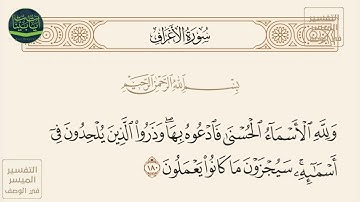 سُورَةُ الأَعْرَافِ
بِسْمِ اللَّهِ الرَّحْمَٰنِ الرَّحِيمِ
وَلِلَّهِ الْأَسْمَاءُ الْحُسْنَىٰ فَادْعُوهُ بِهَا ۖ وَذَرُوا الَّذِينَ يُلْحِدُونَ فِي
أَسْمَائِهِ ۚ سَيُجْزَوْنَ مَا كَانُوا يَعْمَلُونَ ١٨٠
التفسير
الميسر
في الوصف
التفسير
الميسر
في الوصف